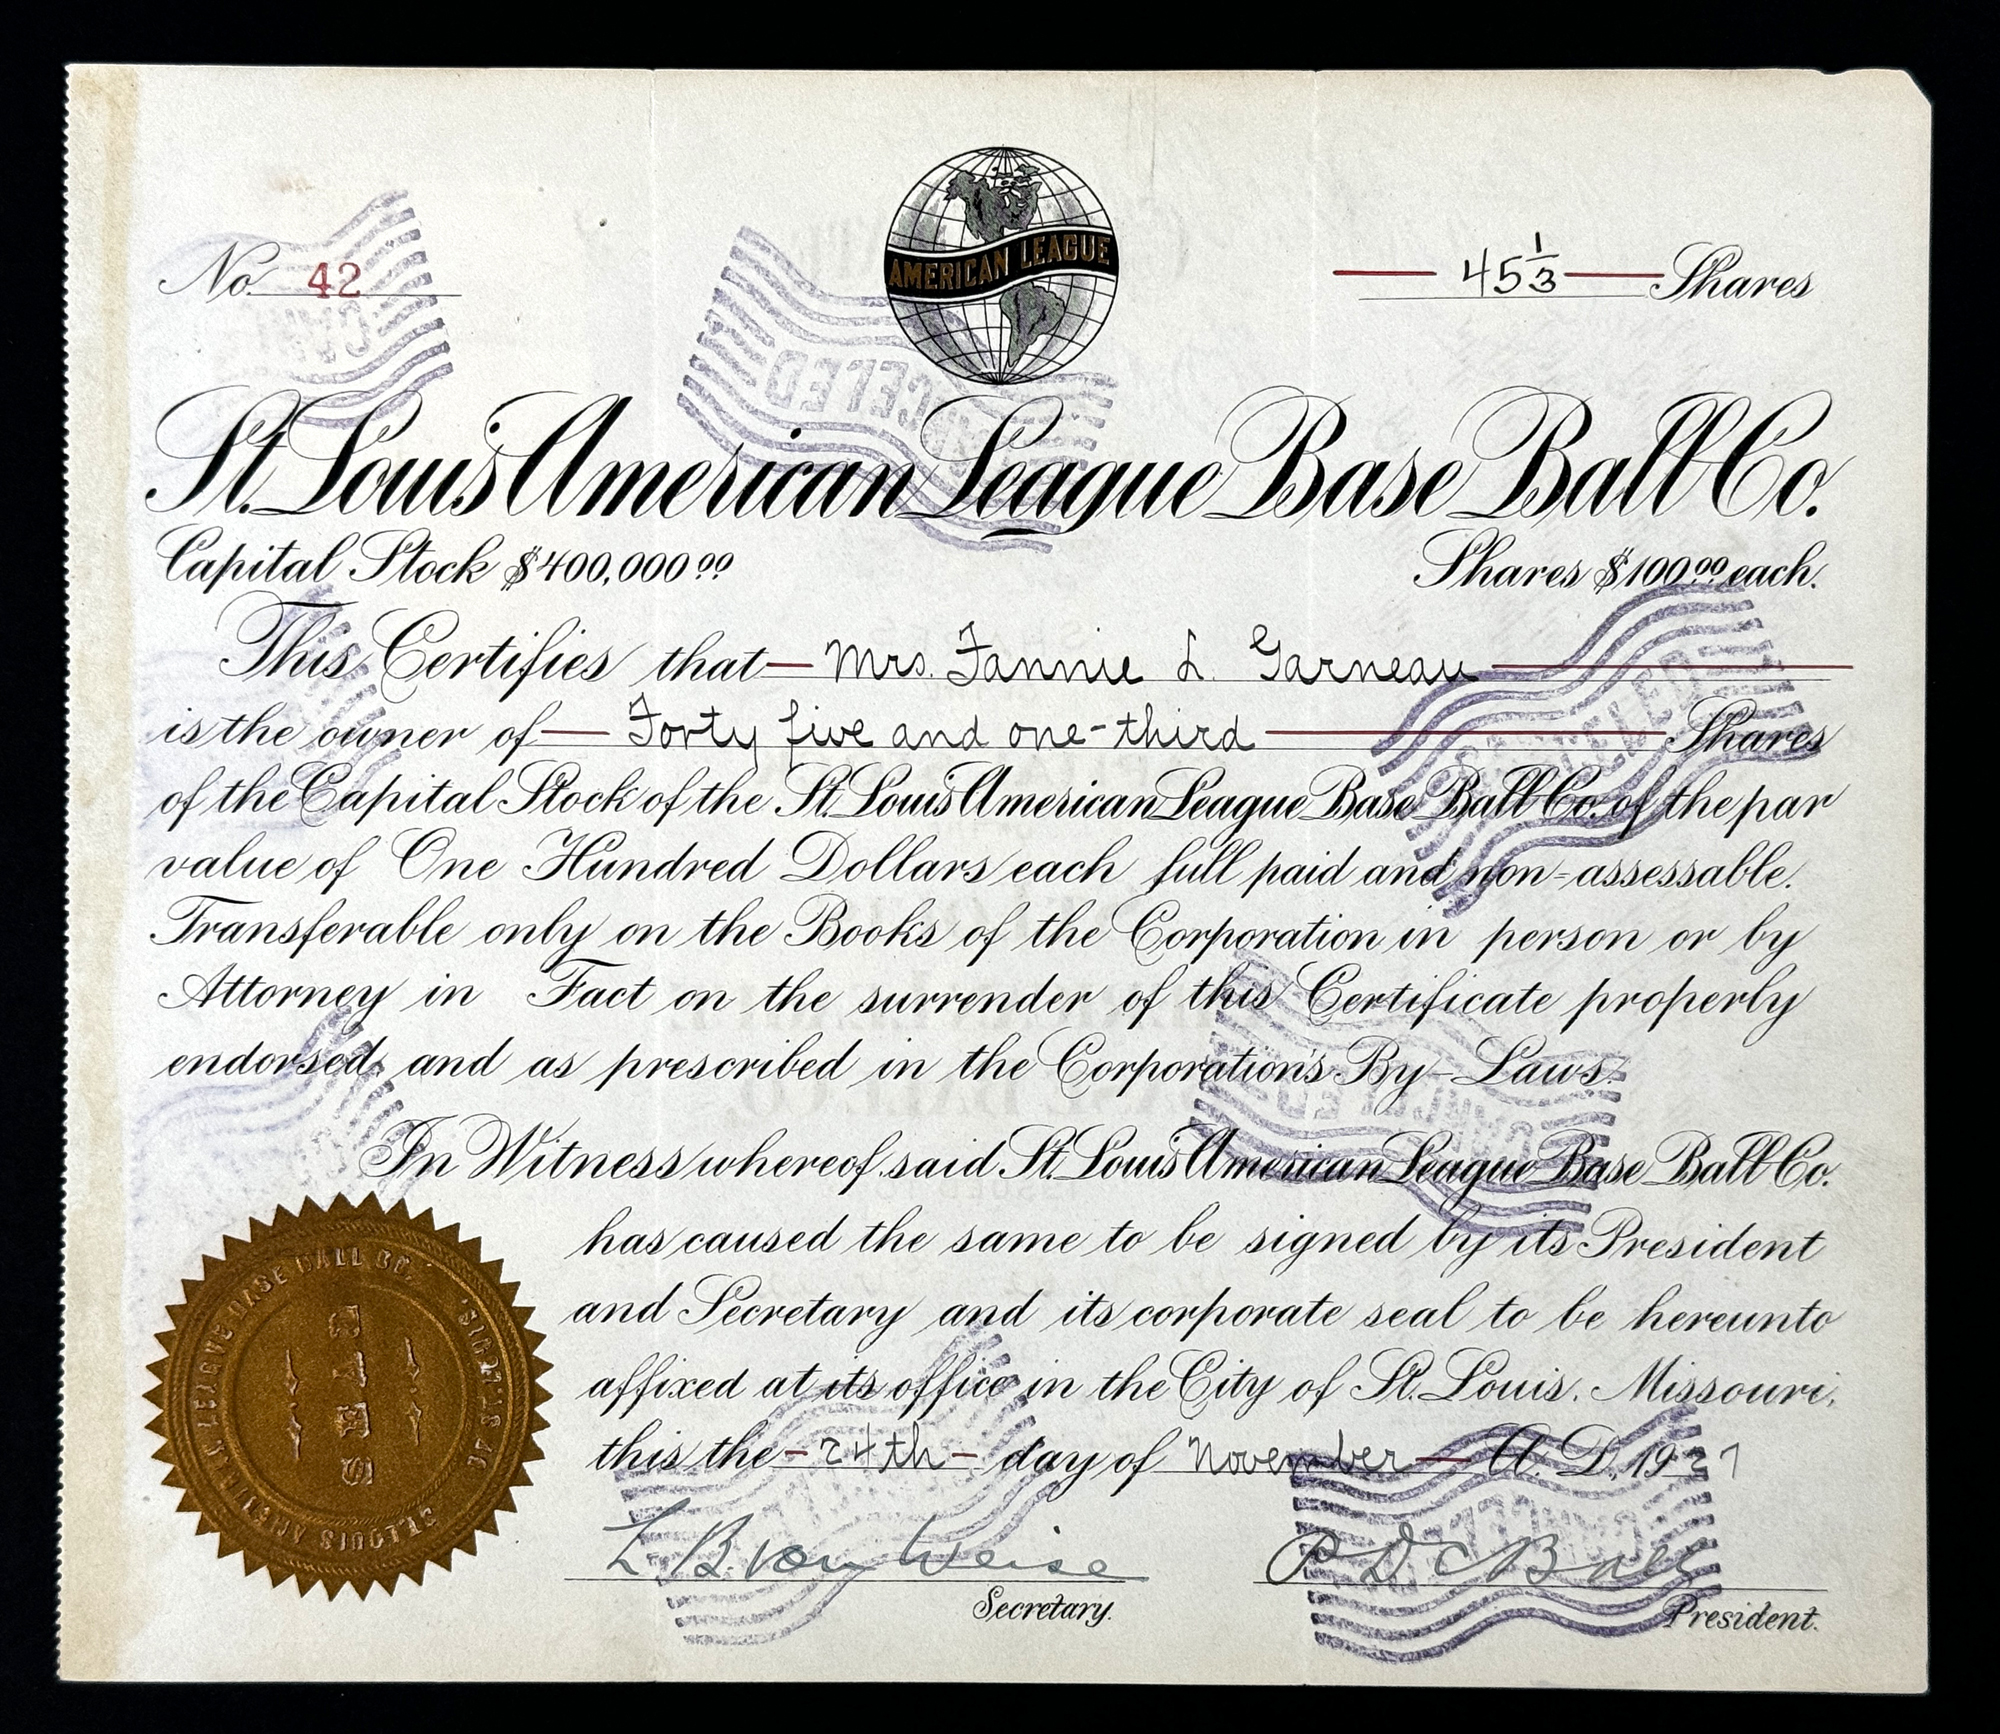 AMERICAN LEAGUE
No. 42
45 1/3 Shares
St. Louis American League Base Ball Co.
Capital Stock $400,000.00 Shares $100.00 each.
This Certifies that Mrs. Fannie L. Garneau
is the owner of Forty five and one-third Shares
of the Capital Stock of the St. Louis American League Base Ball Co. of the par
value of One Hundred Dollars each full paid and non-assessable.
Transferable only on the Books of the Corporation in person or by
Attorney in Fact on the surrender of this Certificate properly
endorsed, and as prescribed in the Corporation's By-Laws.
In Witness whereof, said St. Louis American League Base Ball Co.
has caused the same to be signed by its President
and Secretary and its corporate seal to be hereunto
affixed at its office in the City of St. Louis, Missouri,
this the - 24th - day of November A.D. 1927
L B von Weise
Secretary.
P D C Ball
President.
ST. LOUIS AMERICAN LEAGUE BASE BALL CO.
OF ST. LOUIS.
SEAL
CANCELLED
CANCELLED
CANCELLED
CANCELLED